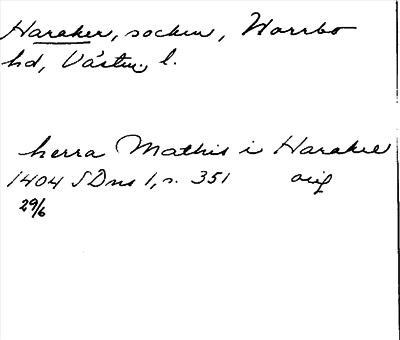 Haraker, socken, Norrbo
hd, Västm. l.
herra Mathis i Harakre
1404 SDns 1, s. 351 orig
29/6